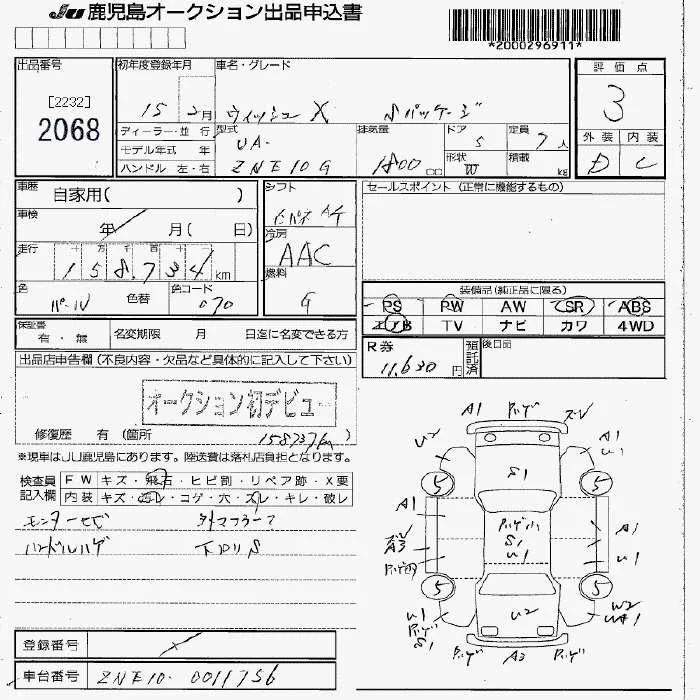 JU 鹿児島オークション出品申込書
*2000296911*
出品番号
[2232]
2068
初年度登録年月
15 2月
車名・グレード
ウィッシュ X Sパッケージ
評価点
3
外装 内装
D C
ディーラー・並行
モデル年式 年
ハンドル 左・右
型式
UA-
ZNE10G
排気量
1800 cc
ドア
5
定員
7人
形状
W
積載
kg
車歴
自家用( )
車検
年 月( 日)
走行
十 万 千 百 十 一
158,734 km
色
パール
色替
色コード
070
シフト
AT
冷房
AAC
燃料
G
セールスポイント (正常に機能するもの)
装備品(純正品に限る)
PS PW AW SR ABS
エアB TV ナビ カワ 4WD
R券
11,630円
預託済
後日面
保証書
有・無
名変期限 月 日迄に名変できる方
出品店申告欄(不良内容・欠品など具体的に記入して下さい)
オークション初デビュー
修復歴 有 (箇所 158737km)
※現車はJU鹿児島にあります。陸送費は落札店負担となります。
検査員記入欄
FW キズ・飛石・ヒビ割・リペア跡・X要
内装 キズ・汚レ・コゲ・穴・スレ・キレ・破レ
社外マフラー
ハンドルハゲ 下回りS
登録番号
車台番号
ZNE10-0011756
A1
U2
A1
U1
S1
5
5
A1
A1
S1
U1
A3
U1
5
5
U1
S1
U2
W2
A3